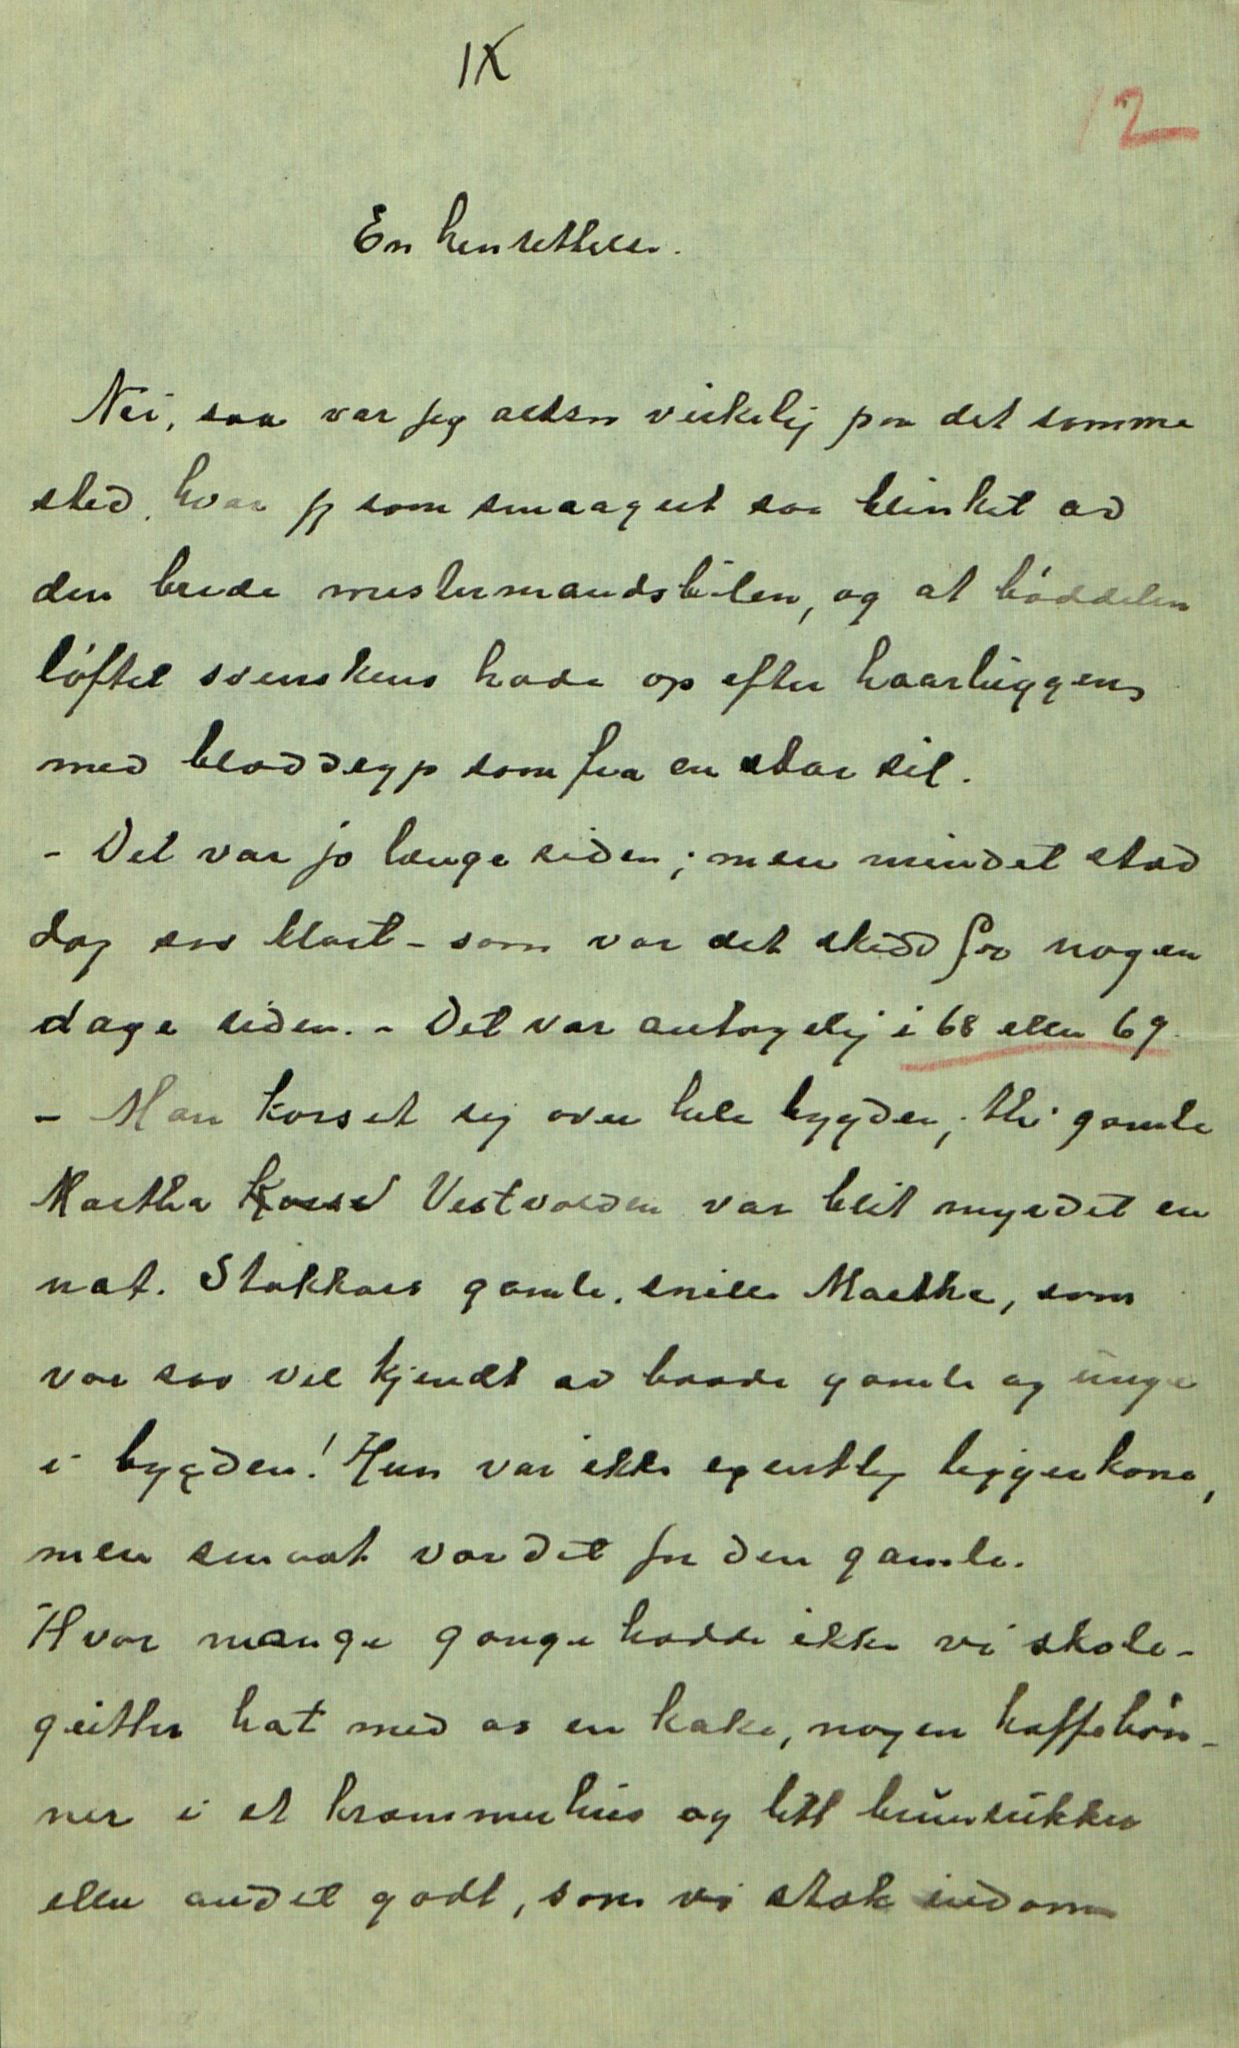 IX
12
En henrettelse.
Nei, saa var jeg altsaa virkelig paa det samme
sted, hvor jeg som smaagut saa blinket av
den brede mestermandsbilen, og at bøddelen
løftet svenskens hode op efter haarluggen,
med bloddryp som fra en stor sil.
- Det var jo længe siden; men mindet stod
dog saa klart - som var det skedd for nogen
dage siden. - Det var antagelig i 68 eller 69.
- Man korset sig over hele bygden, thi gamle
Marthe Vestvolden var blit myrdet en
nat. Stakkars gamle, snille Marthe, som
var saa vel kjendt av baade gamle og unge
i bygden! Hun var ikke egentlig lægjerkone,
men smaat var det for den gamle.
Hvor mange gange hadde ikke vi skole-
gutter hat med os en kake, nogen kaffebøn-
ner i et kræmmerhus og litt brunsukker
eller andet godt, som vi stak indom